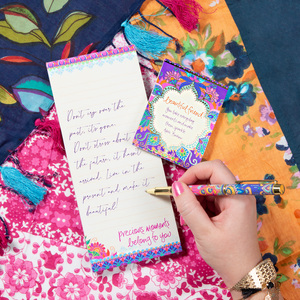 Don't cry over the
past, it's gone.
Don't stress about
the future, it hasn't
arrived. Live in the
present and make it
beautiful!
precious moments
belong to you
Beautiful friend